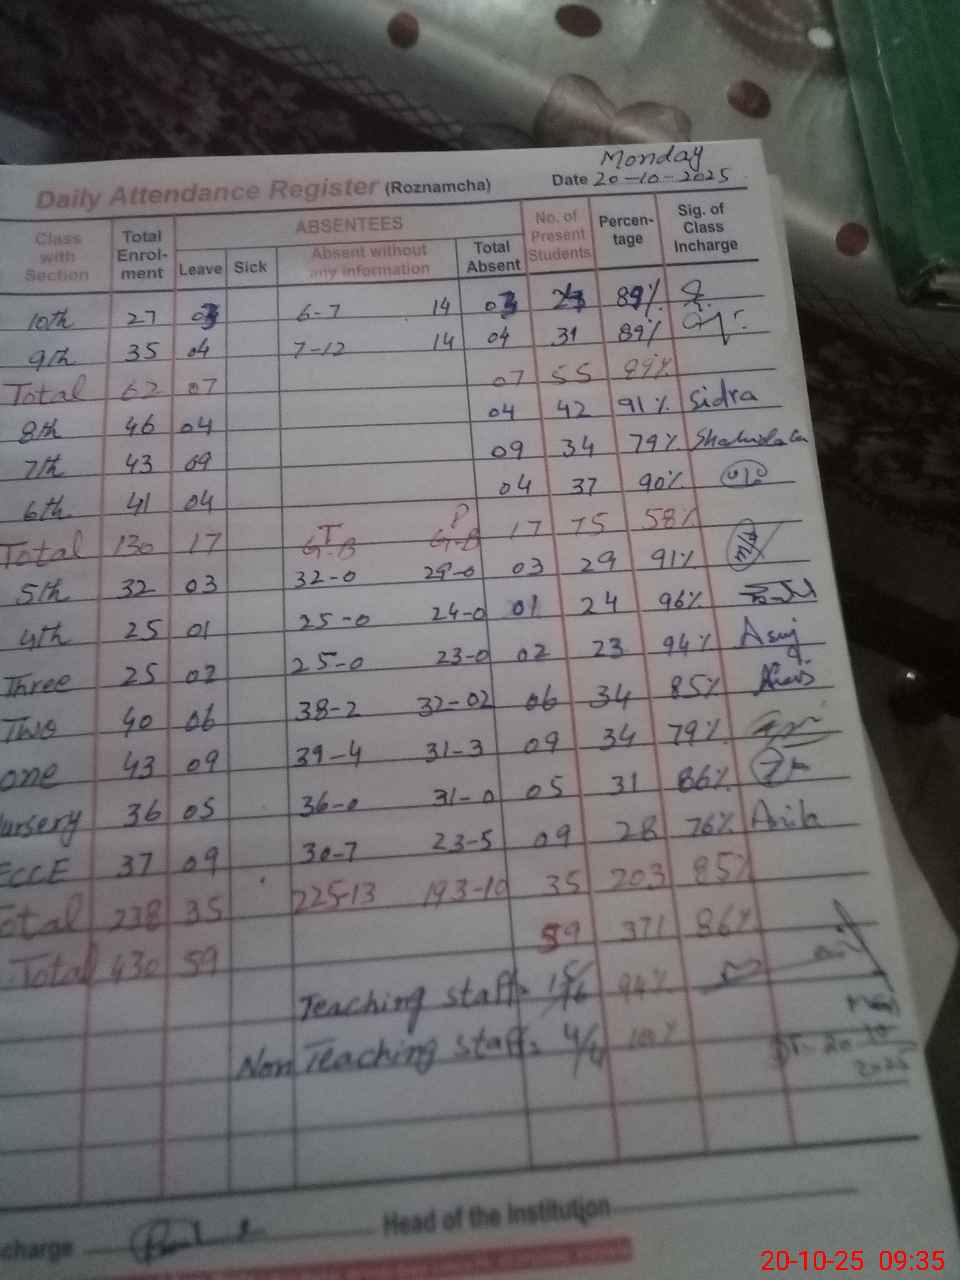 Monday
Daily Attendance Register (Roznamcha) Date 20-10-2025
Class with Section Total Enrol-ment ABSENTEES Leave Sick Absent without any information Total Absent No. of Present Students Percen-tage Sig. of Class Incharge
10th 27 03 6-7 14 03 24 89%
9th 35 04 7-12 14 04 31 89%
Total 62 07 07 55 89%
8th 46 04 04 42 91% Sidra
7th 43 09 09 34 79%
6th 41 04 04 37 90%
Total 130 17 T G-B P G-B 17 75 58%
5th 32 03 32-0 29-0 03 29 91%
4th 25 01 25-0 24-0 01 24 96%
Three 25 02 25-0 23-0 02 23 94%
Two 40 06 38-2 32-02 06 34 85%
one 43 09 39-4 31-3 09 34 79%
Nursery 36 05 36-0 31-0 05 31 86%
ECCE 37 09 30-7 23-5 09 28 76%
Total 238 35 225-13 193-10 35 203 85%
Total 430 59 59 371 86%
Teaching staff= 15/16 94%
Non Teaching staff= 4/4
2025
charge Head of the Institution
20-10-25 09:35